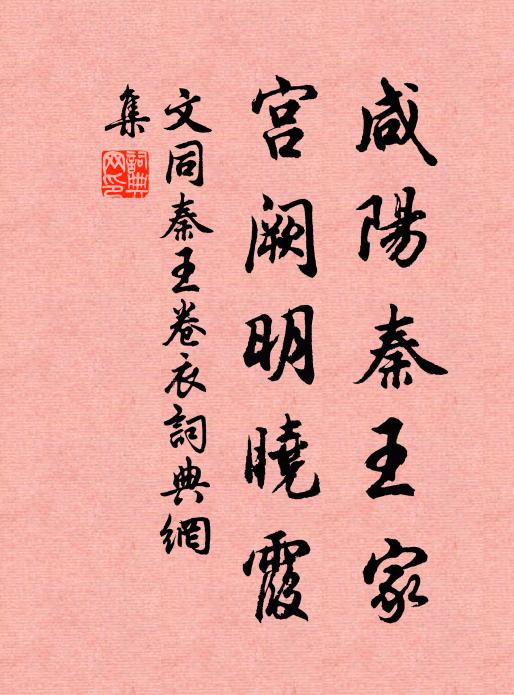 咸陽秦王家
宮闕明曉霞
文同秦王卷衣詞典網
集
詞典網印